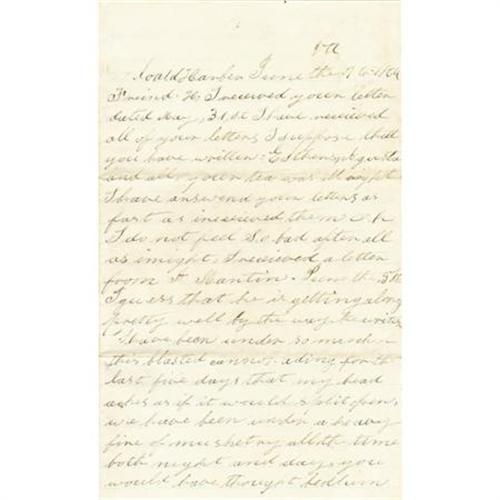 Va
Coald Harber June the 7 1864
Freind H I received your letter
dated May, 31st I have received
all of your letters I suppose that
you have written.
and all your tea was all right
I have answerd your letters as
fast as ireceived them
I do not feel So bad after all
as imight, I received a letter
from F Martin. June the, 5th
I guess that he is getting along
pretty well by the way he writes
I have been under so much
this blasted cannonading for the
last five days that my head
aches as if it would split open,
we have been under a heavy
fire of musketry all the time
both night and day, you
would have thought bedlum